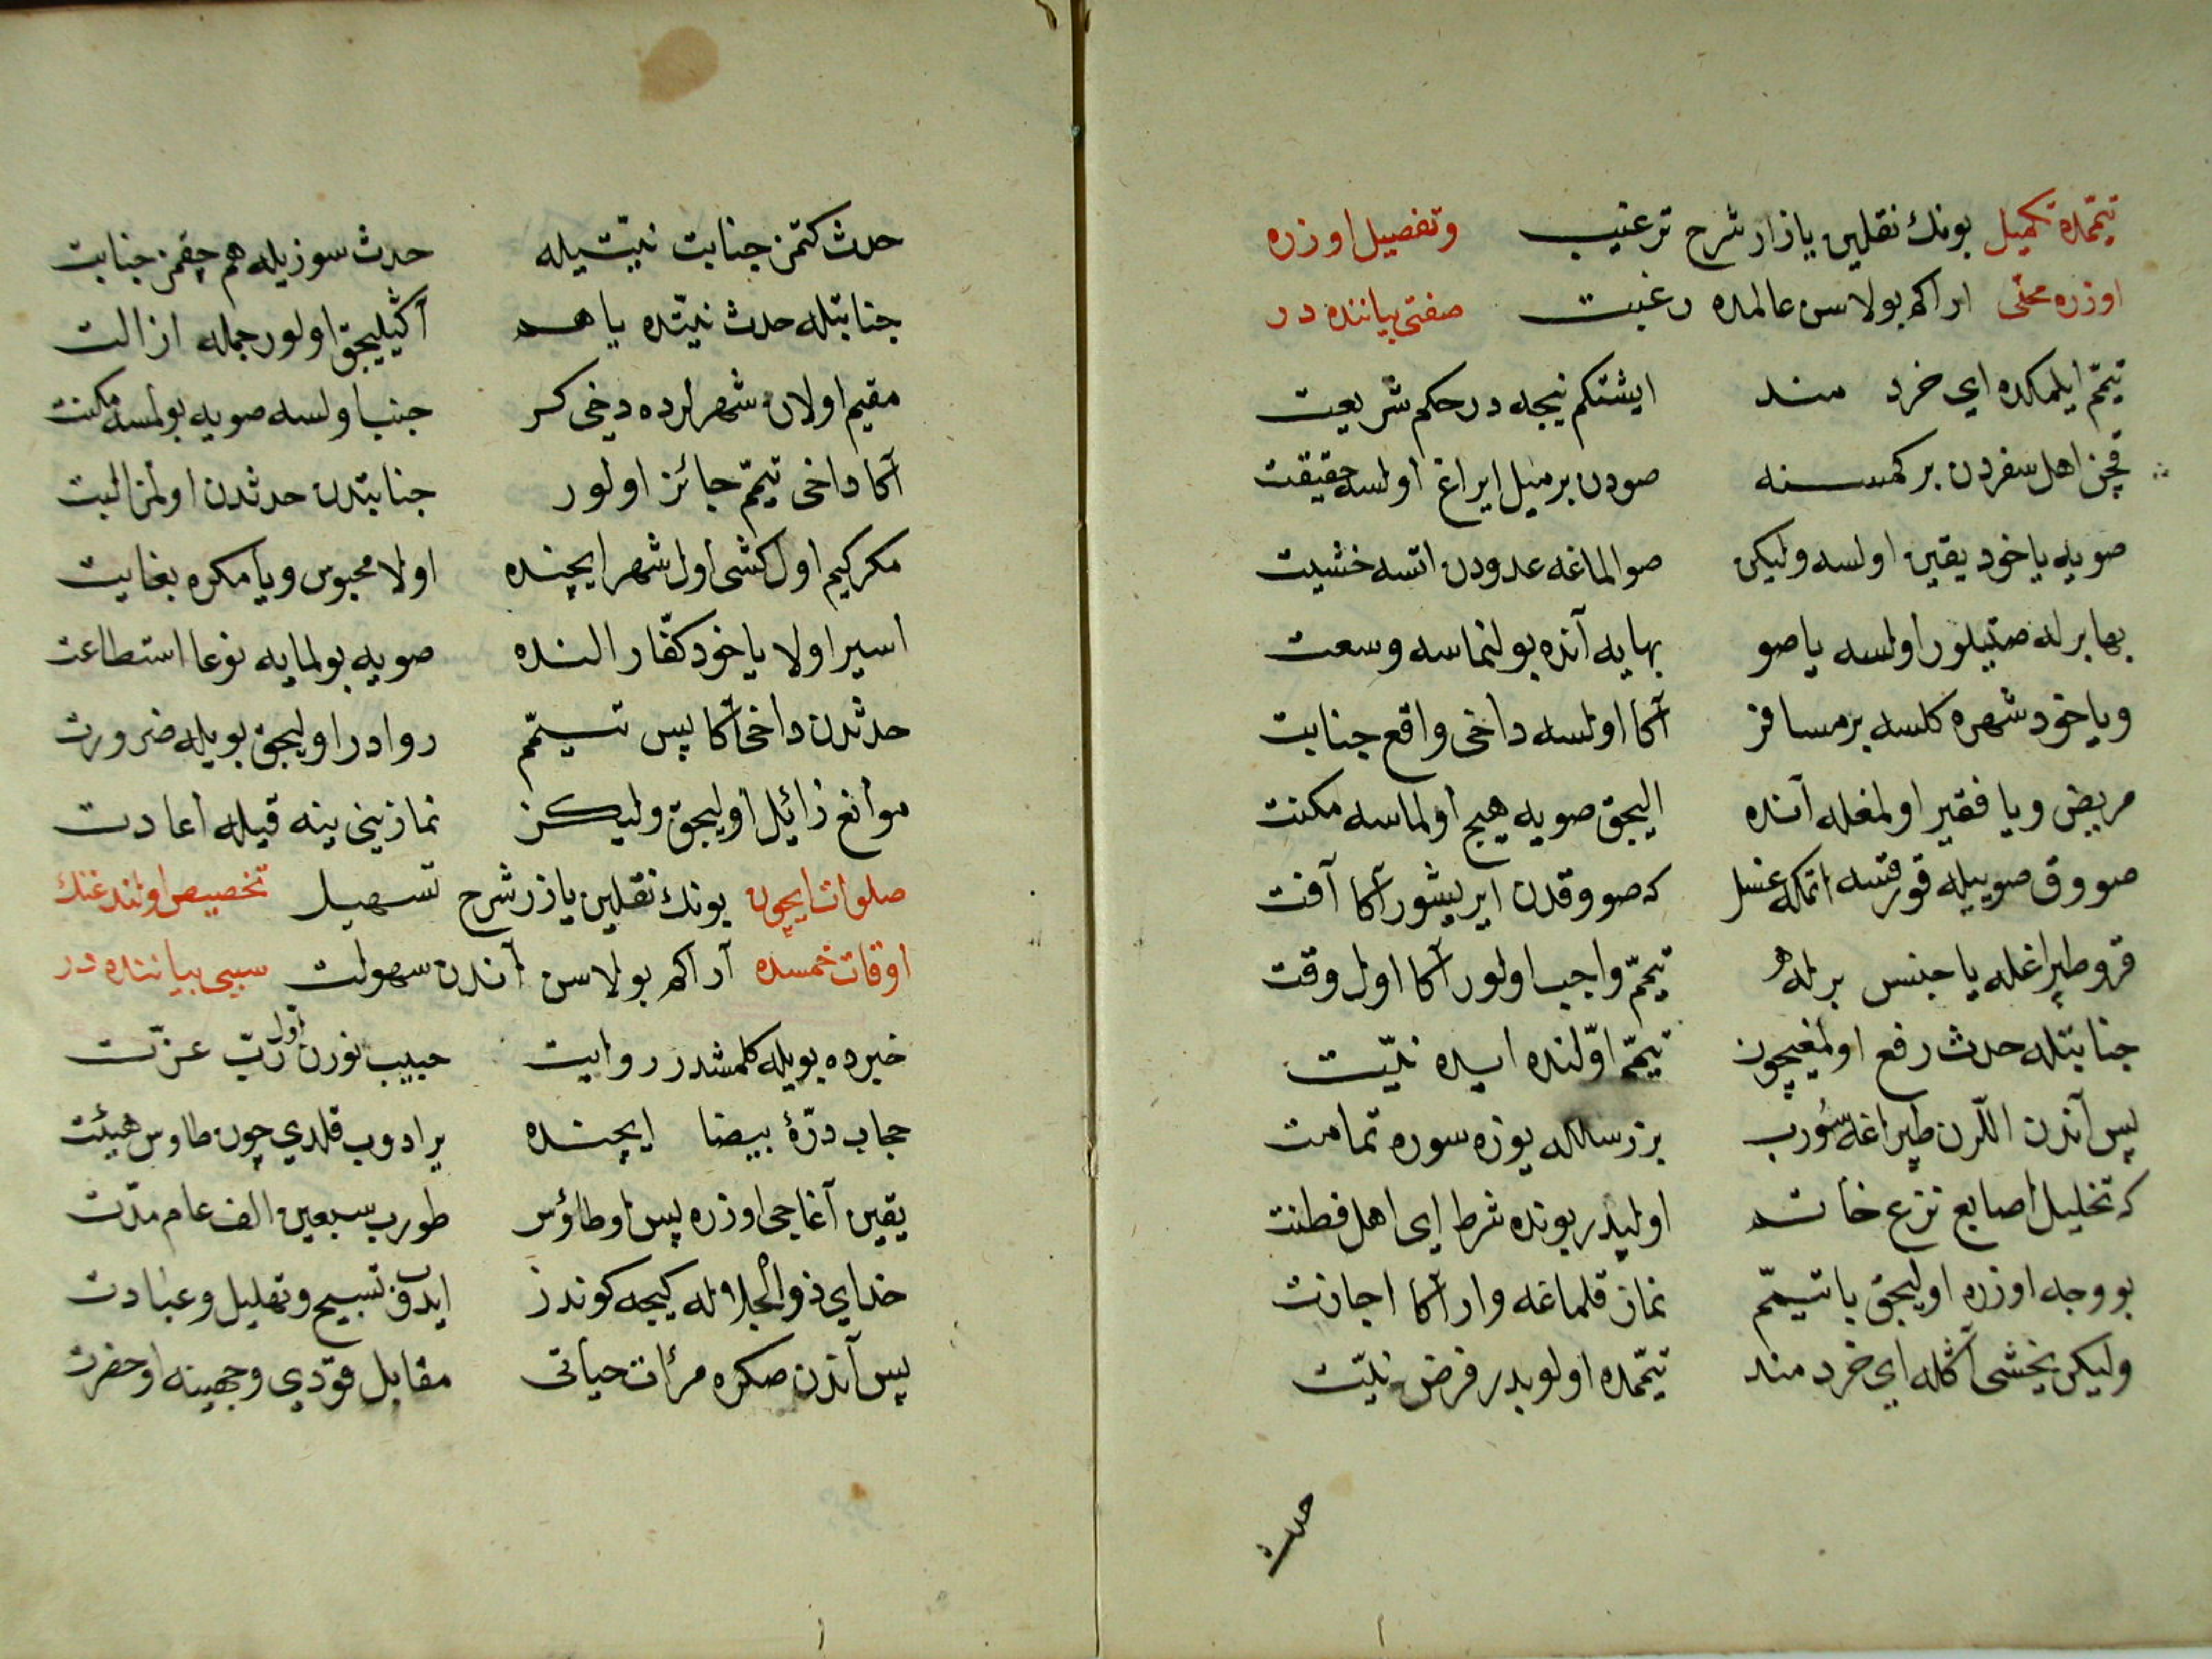 تیمّمده تکمیل بونك نقلین یازار شرح ترغیب وتفصیل اوزره
اوزره محلّی اراکم بولاسن عالمده رغبت صفتی بیاننده در
تیمّم ایلمکده ای خرد مند ایشتکم نیجه در حکم شریعت
قچن اهل سفردن بر کمسنه صودن بر میل ایراغ اولسه حقیقت
صویه یاخود یقین اولسه ولیکن صو الماغه عدودن اتسه خشیت
بها برله صتیلور اولسه یا صو بهایه آنده بولنماسه وسعت
ویاخود شهره کلسه بر مسافر آکا اولسه داخی واقع جنابت
مریض ویا فقیر اولمغله آنده الیجق صویه هیچ اولماسه مکنت
صووق صوییله قورقسه اتمکه غسل که صووقدن ایریشور آکا آفت
قرو طپراغله یا جنس برله هو تیمّم واجب اولور آکا اول وقت
جنابتله حدث رفع اولمغیچون تیمّم اوّلنده ایده نیّت
پس آندن اللرن طپراغه سُورب بزرسالکه یوزه سوره تمامت
که تخلیل اصابع نزع خاتم اولپدر بونده شرط ای اهل فطنت
بو وجه اوزره اولیجق یا تیمّم نماز قلماغه وار آکا اجازت
ولیکن یخشی آکله ای خرد مند تیمّمده اولوبدر فرض نیّت
حدث
حدث کتمز جنابت نیّتیله حدث سوزیله هم چقمز جنابت
جنابتله حدث نیّتده یا هم آکیلیجق اولور جمله ازالت
مقیم اولان شهرلرده دخی کر جنب اولسه صویه بولمسه مکنت
آکا داخی تیمّم جائز اولور جنابتدن حدثدن اولمز البت
مکر کیم اول کشی اول شهر ایچنده اولا محبوس ویا مکره بغایت
اسیر اولا یاخود کفّار النده صویه بولمایه نوعا استطاعت
حدثدن داخی آکا پس تیمّم روادر اولیجق بویله ضرورت
موانع زائل اولیجق ولیکن نمازینی ینه قیله اعادت
صلوات ایچون بونك نقلین یازر شرح تسهیل تخصیص اولندغنك
اوقات خمسده آراکم بولاسن آندن سهولت سببی بیاننده در
خبرده بویله کلمشدر روایت حبیب نورن اول ربّ عزّت
حجاب درّهٔ بیضا ایچنده یرادوب قلدی چون طاوس هیئت
یقین آغاجی اوزره پس او طاؤس طورب سبعین الف عام مدّت
خدای ذو الجلاله کیجه کوندز ایدب تسبیح وتهلیل وعبادت
پس آندن صکره مرأت حیاتی مقابل قودی وجهینه او حضرت